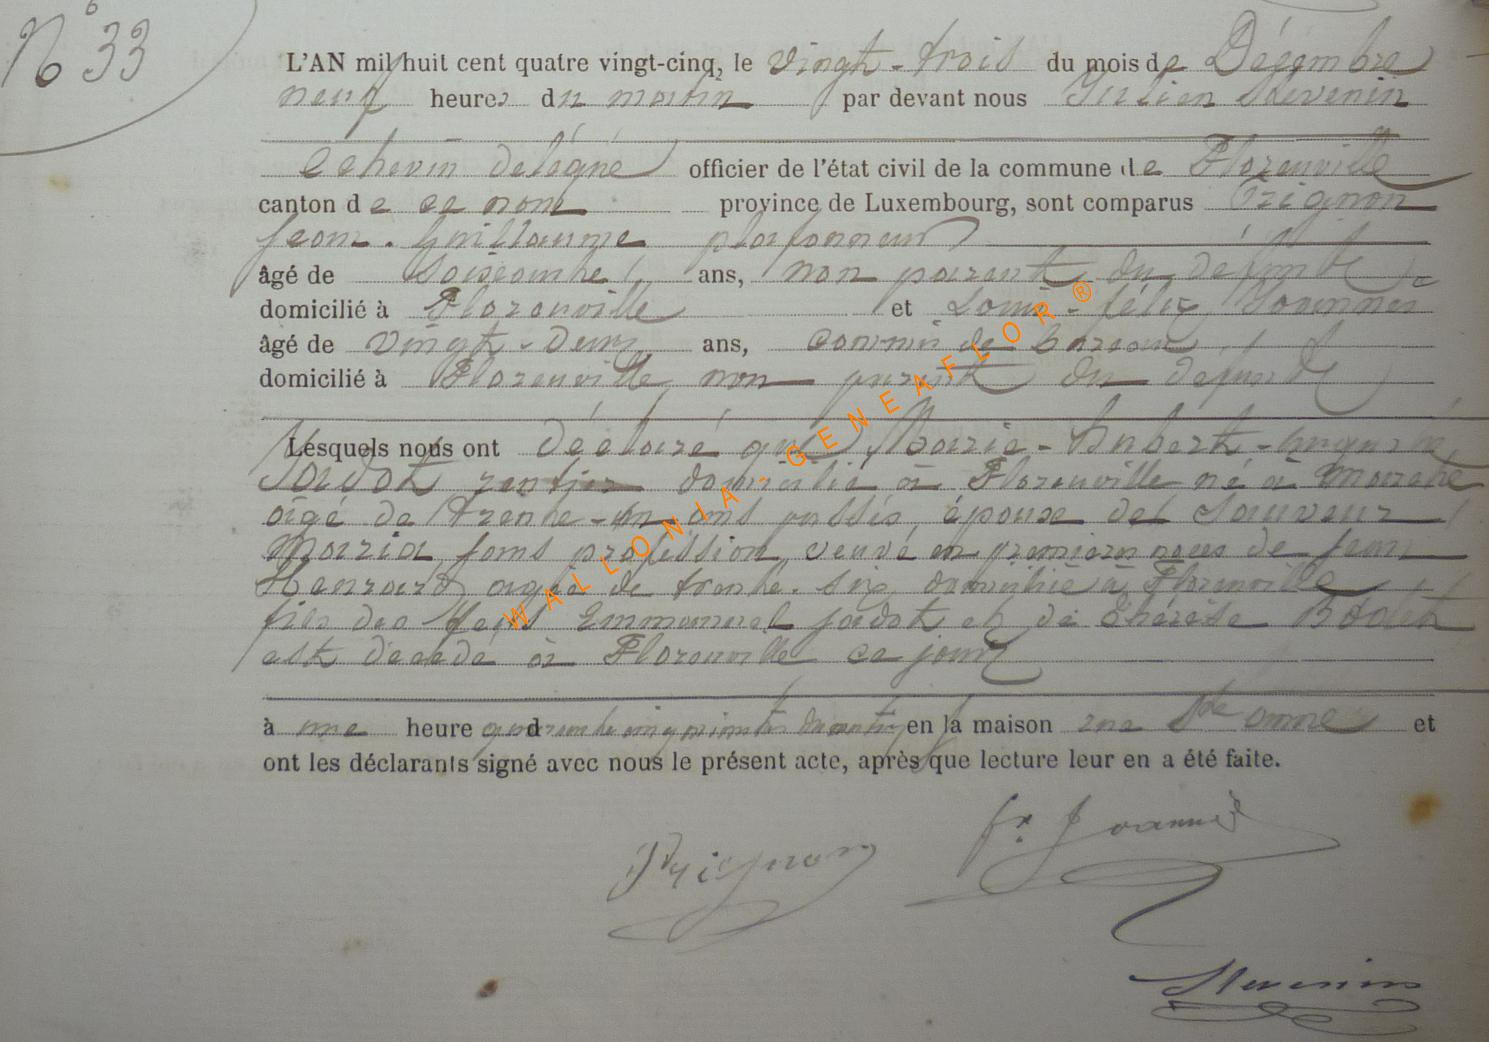 No 33
L'AN mil huit cent quatre vingt-cinq, le vingt-trois du mois de Décembre
neuf heures du matin par devant nous Julien Stevenin
Echevin délégué officier de l'état civil de la commune de Florenville
canton de ce nom province de Luxembourg, sont comparus
Jean-Guillaume plafonneur
âgé de soixante ans, non parent du défunt
domicilié à Florenville et Louis-félix
âgé de vingt-deux ans, commis de bureau
domicilié à Florenville non parent du défunt
Lesquels nous ont déclaré que Marie-hubert-auguste
Jadot rentier domicilié à Florenville né à Marche
âgé de trente-un ans passés, époux de Sauveur
Maria sans profession, veuve en premières noces de Jean
Henrard agée de trente-six domiciliée à Florenville
fils des feus Emmanuel Jadot et de thérèse
est décédé à Florenville ce jour
à une heure quarante cinq minutes du matin en la maison rue Ste anne et
ont les déclarants signé avec nous le présent acte, après que lecture leur en a été faite.
Stevenin
WALLONIA-GENEAFLOR®